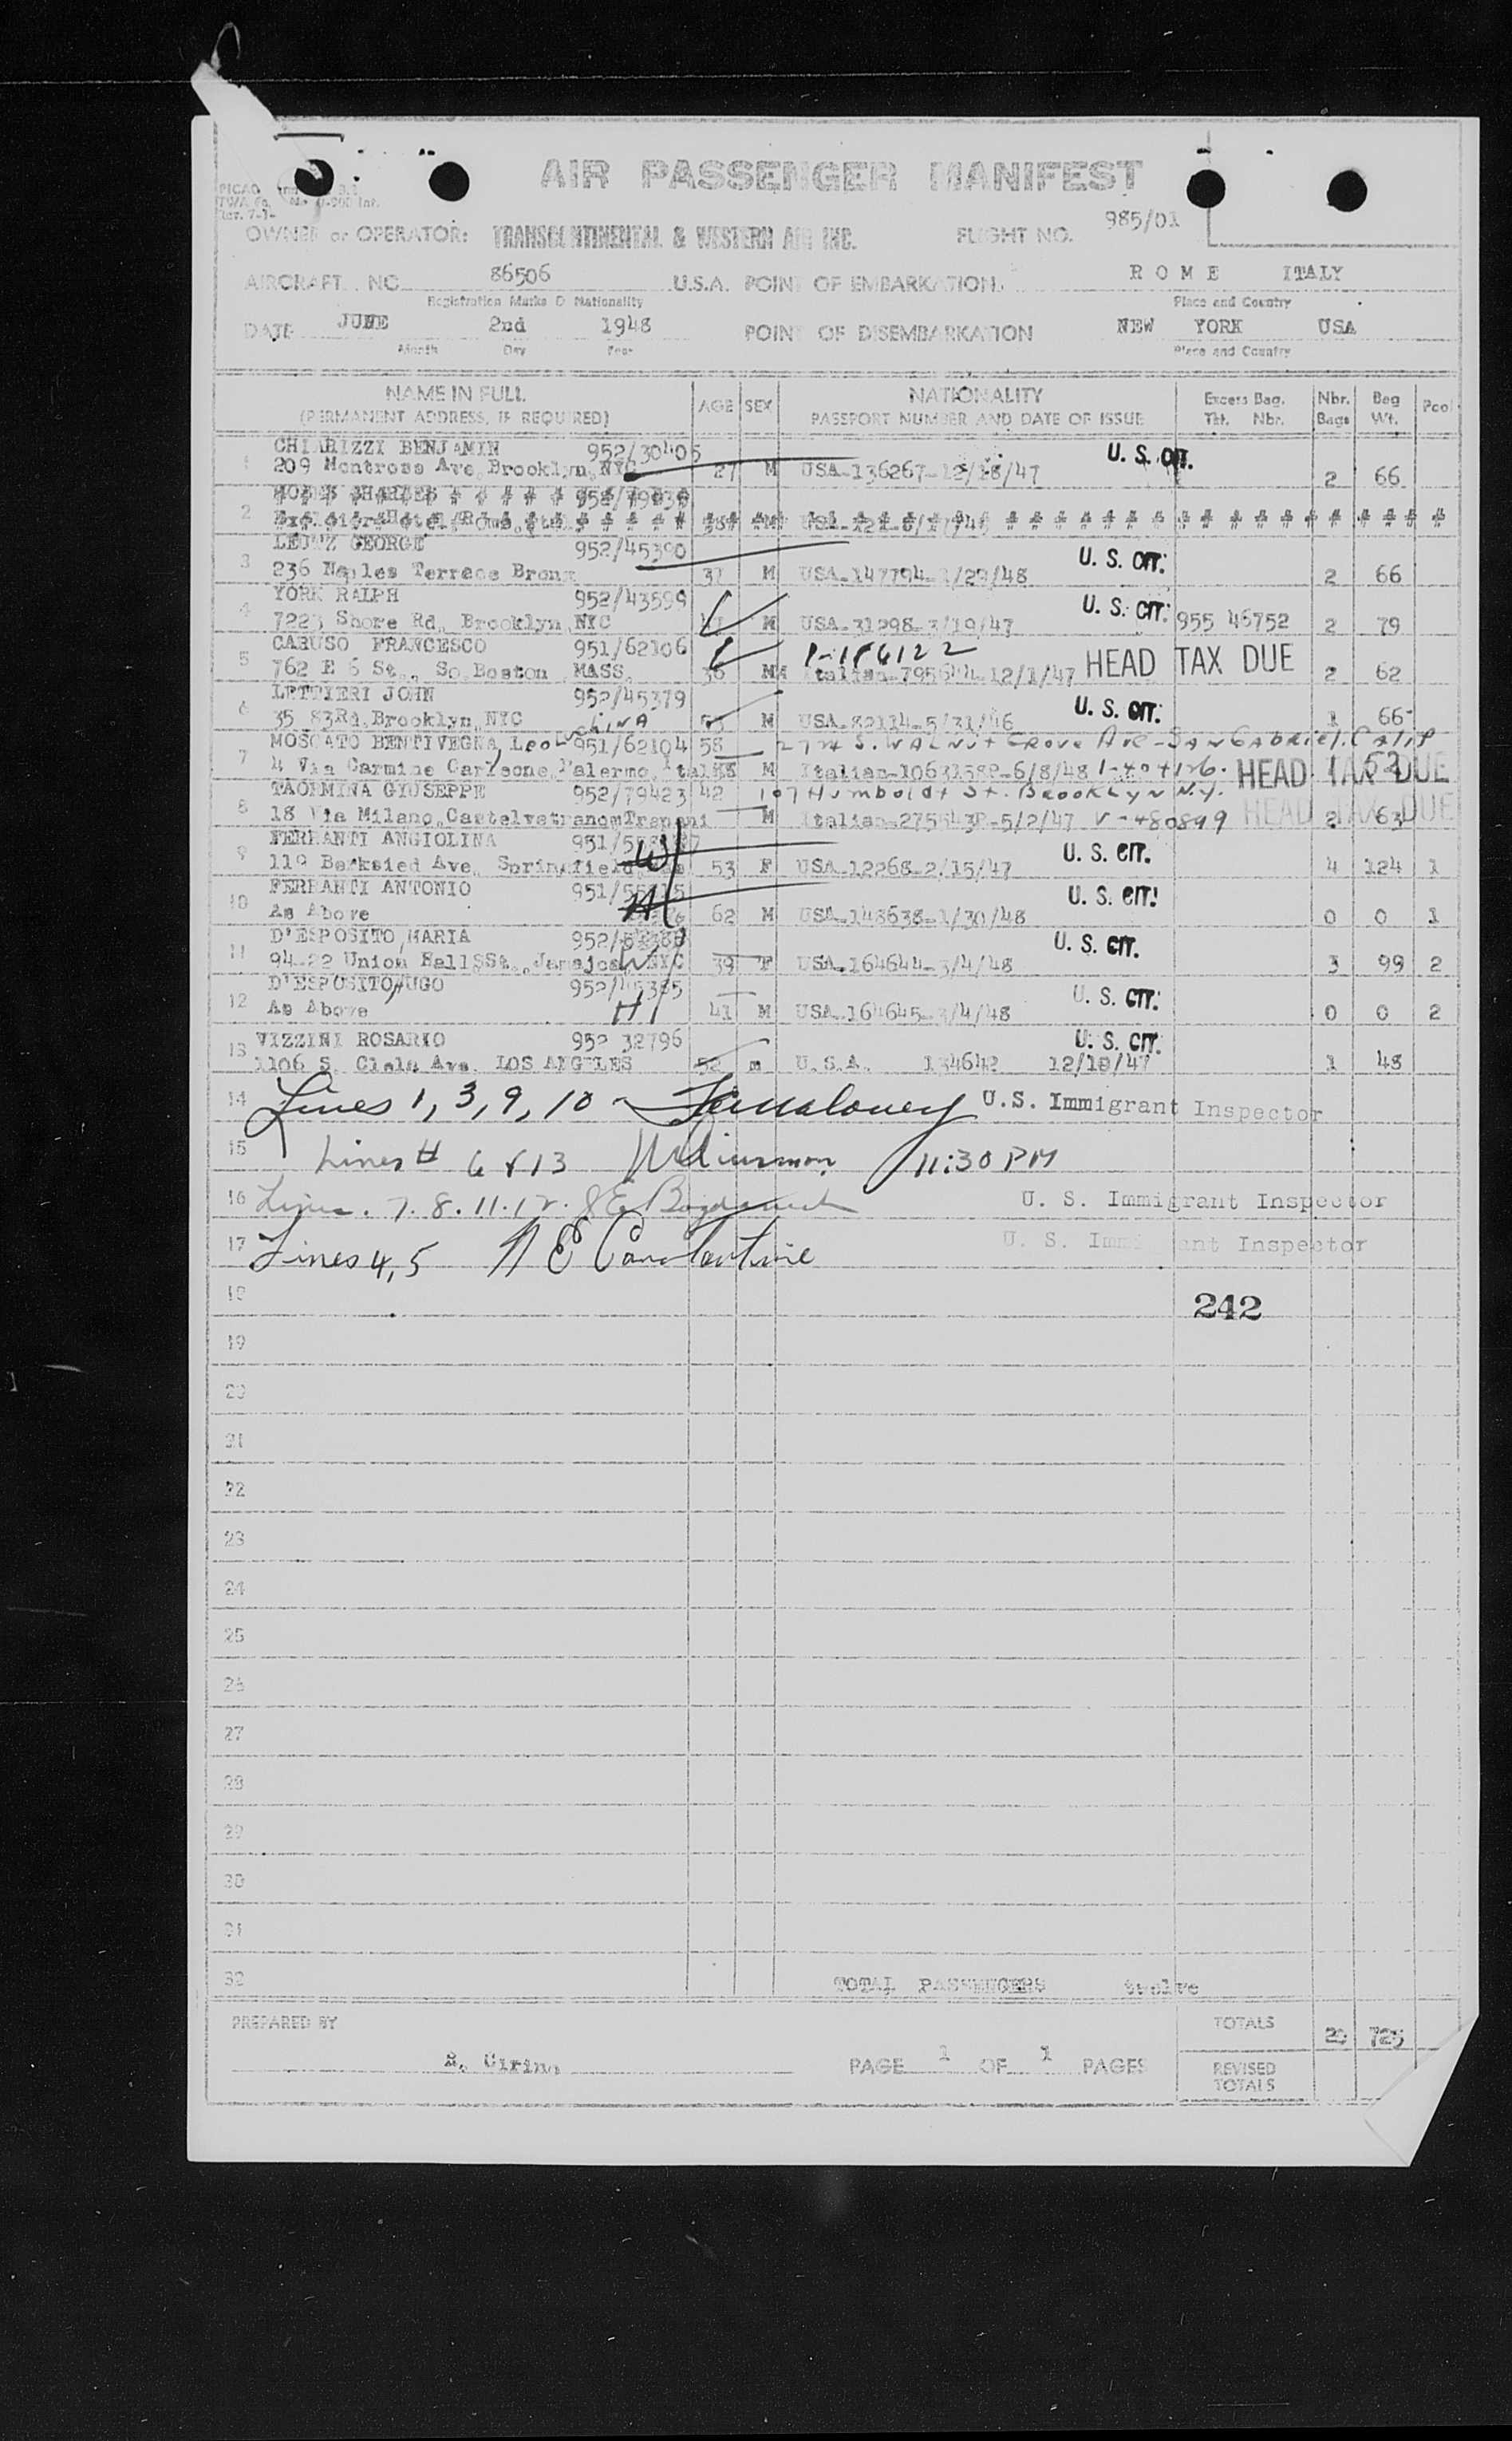 AIR PASSENGER MANIFEST
OWNER or OPERATOR: TRANSCONTINENTAL & WESTERN AIR INC. FLIGHT NO. 985/01
AIRCRAFT NO. 86506 U.S.A. POINT OF EMBARKATION. ROME ITALY
Registration Marks & Nationality Place and Country
DATE JUNE 2nd 1948 POINT OF DISEMBARKATION NEW YORK USA
Month Day Year Place and Country
NAME IN FULL AGE SEX NATIONALITY Excess Bag. Nbr. Bag Pool
(PERMANENT ADDRESS, IF REQUIRED) PASSPORT NUMBER AND DATE OF ISSUE Tkt. Nbr. Bags Wt.
1 CHIARIZZI BENJAMIN 952/30405 U. S. CIT.
209 Montross Ave. Brooklyn, NYC 27 M USA-136267-12/18/47 2 66
2
3 GEORGE 952/45390 U. S. CIT.
236 Naples Terrace Bronx 37 M USA-147794-1/29/48 2 66
4 YORK RALPH 952/43599 U. S. CIT.
7223 Shore Rd. Brooklyn, NYC M USA-31298-3/19/47 955 46752 2 79
5 CARUSO FRANCESCO 951/62106 HEAD TAX DUE
762 E 6 St., So. Boston MASS. 36 M Italian-795644-12/1/47 2 62
6 LETTIERI JOHN 952/45379 U. S. CIT.
35 83Rd. Brooklyn, NYC M USA-82114-5/31/46 1 66
7 MOSCATO BENTIVEGNA, Leoluchina 951/62104 58 S. WALNUT GROVE AVE - SAN GABRIEL. CALIF
4 Via Carmine Palermo, Italy M Italian- 6/8/48 HEAD TAX DUE 1 52
8 TAORMINA GIUSEPPE 952/79423 42 107 Humboldt St. Brooklyn N.Y.
18 Via Milano, Trapani M Italian- 5/2/47 V-480899 HEAD TAX DUE 2 63
9 FERRANTI ANGIOLINA U. S. CIT.
119 Ave. Springfield W/ 53 F USA-12268-2/15/47 4 124 1
10 FERRANTI ANTONIO U. S. CIT.
As Above H/ 62 M USA-148638-1/30/48 0 0 1
11 D'ESPOSITO, MARIA U. S. CIT.
94-22 Union Hall St., Jamaica NYC W/ 39 F USA-164644-3/4/48 3 99 2
12 D'ESPOSITO, UGO 952/45385 U. S. CIT.
As Above H/ 41 M USA-164645-3/4/48 0 0 2
13 VIZZINI ROSARIO 952 32796 U. S. CIT.
1106 S. Ave. LOS ANGELES 52 m U.S.A. 134642 12/18/47 1 48
14 Lines 1, 3, 9, 10 - U.S. Immigrant Inspector
15 Lines # 6 & 13 11:30 PM
16 Lines. 7. 8. 11. 12. U. S. Immigrant Inspector
17 Lines 4, 5 N E Constantine U. S. Immigrant Inspector
18 242
19
20
21
22
23
24
25
26
27
28
29
30
31
32 TOTAL PASSENGERS twelve
PREPARED BY TOTALS 20 725
PAGE 1 OF 1 PAGES REVISED TOTALS